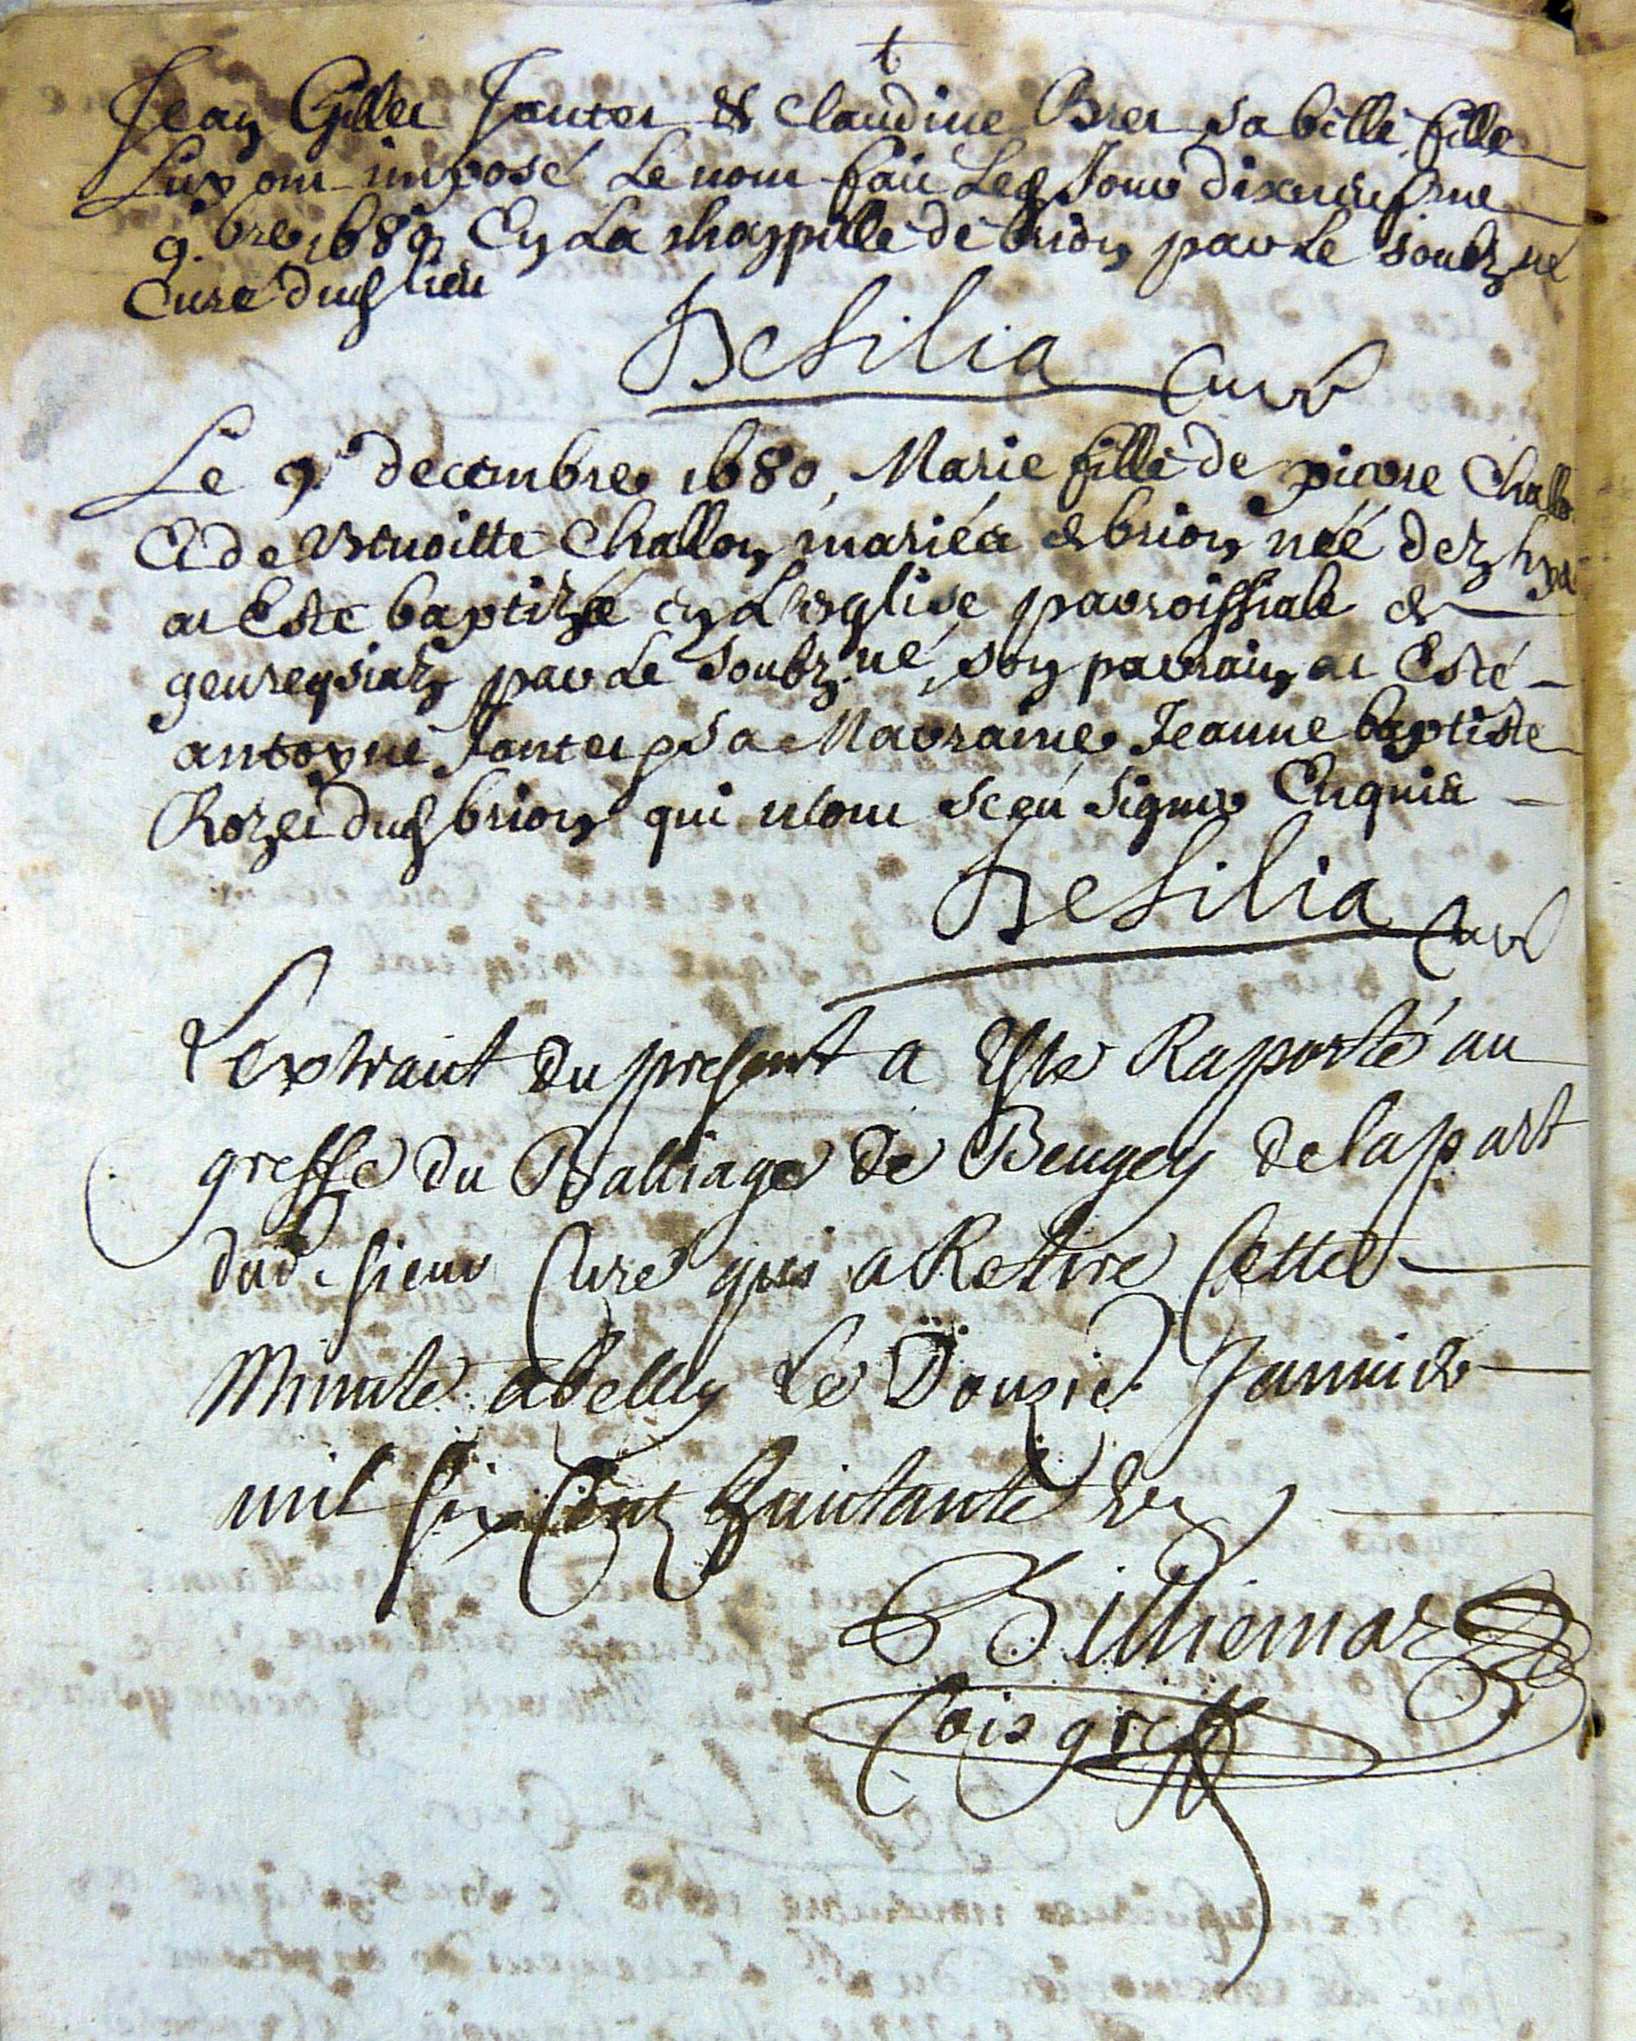 Jean Gilles Jantet & Claudine Brex sa belle fille
Luy ont imposé le nom fait lesd Jour dixneufme
9.bre 1680 En La chappelle de brion par Le soubzné
Curé dud lieu
De Silia Curé
Le 9e decembre 1680 Marie fille de pierre Challon
Et de Challon mariés de brion née dez hyer
at Esté baptizée en L'esglise parroissiale de
geureyssiatz par Le soubz.né, son parrain at Esté
antoyne Jantet sa Marraine Jeanne baptiste
Rozet dud brion qui n'ont sceu signer Enquis
De Silia Curé
L'extrait du present a Esté Raporté au
greffe du Balliage de Beugey de la part
dud. sieur Curé qui a Retiré Cette
Minute a belley Le Douzie. Janvier
mil six Cent huictante un
Billiemaz
Cois greff